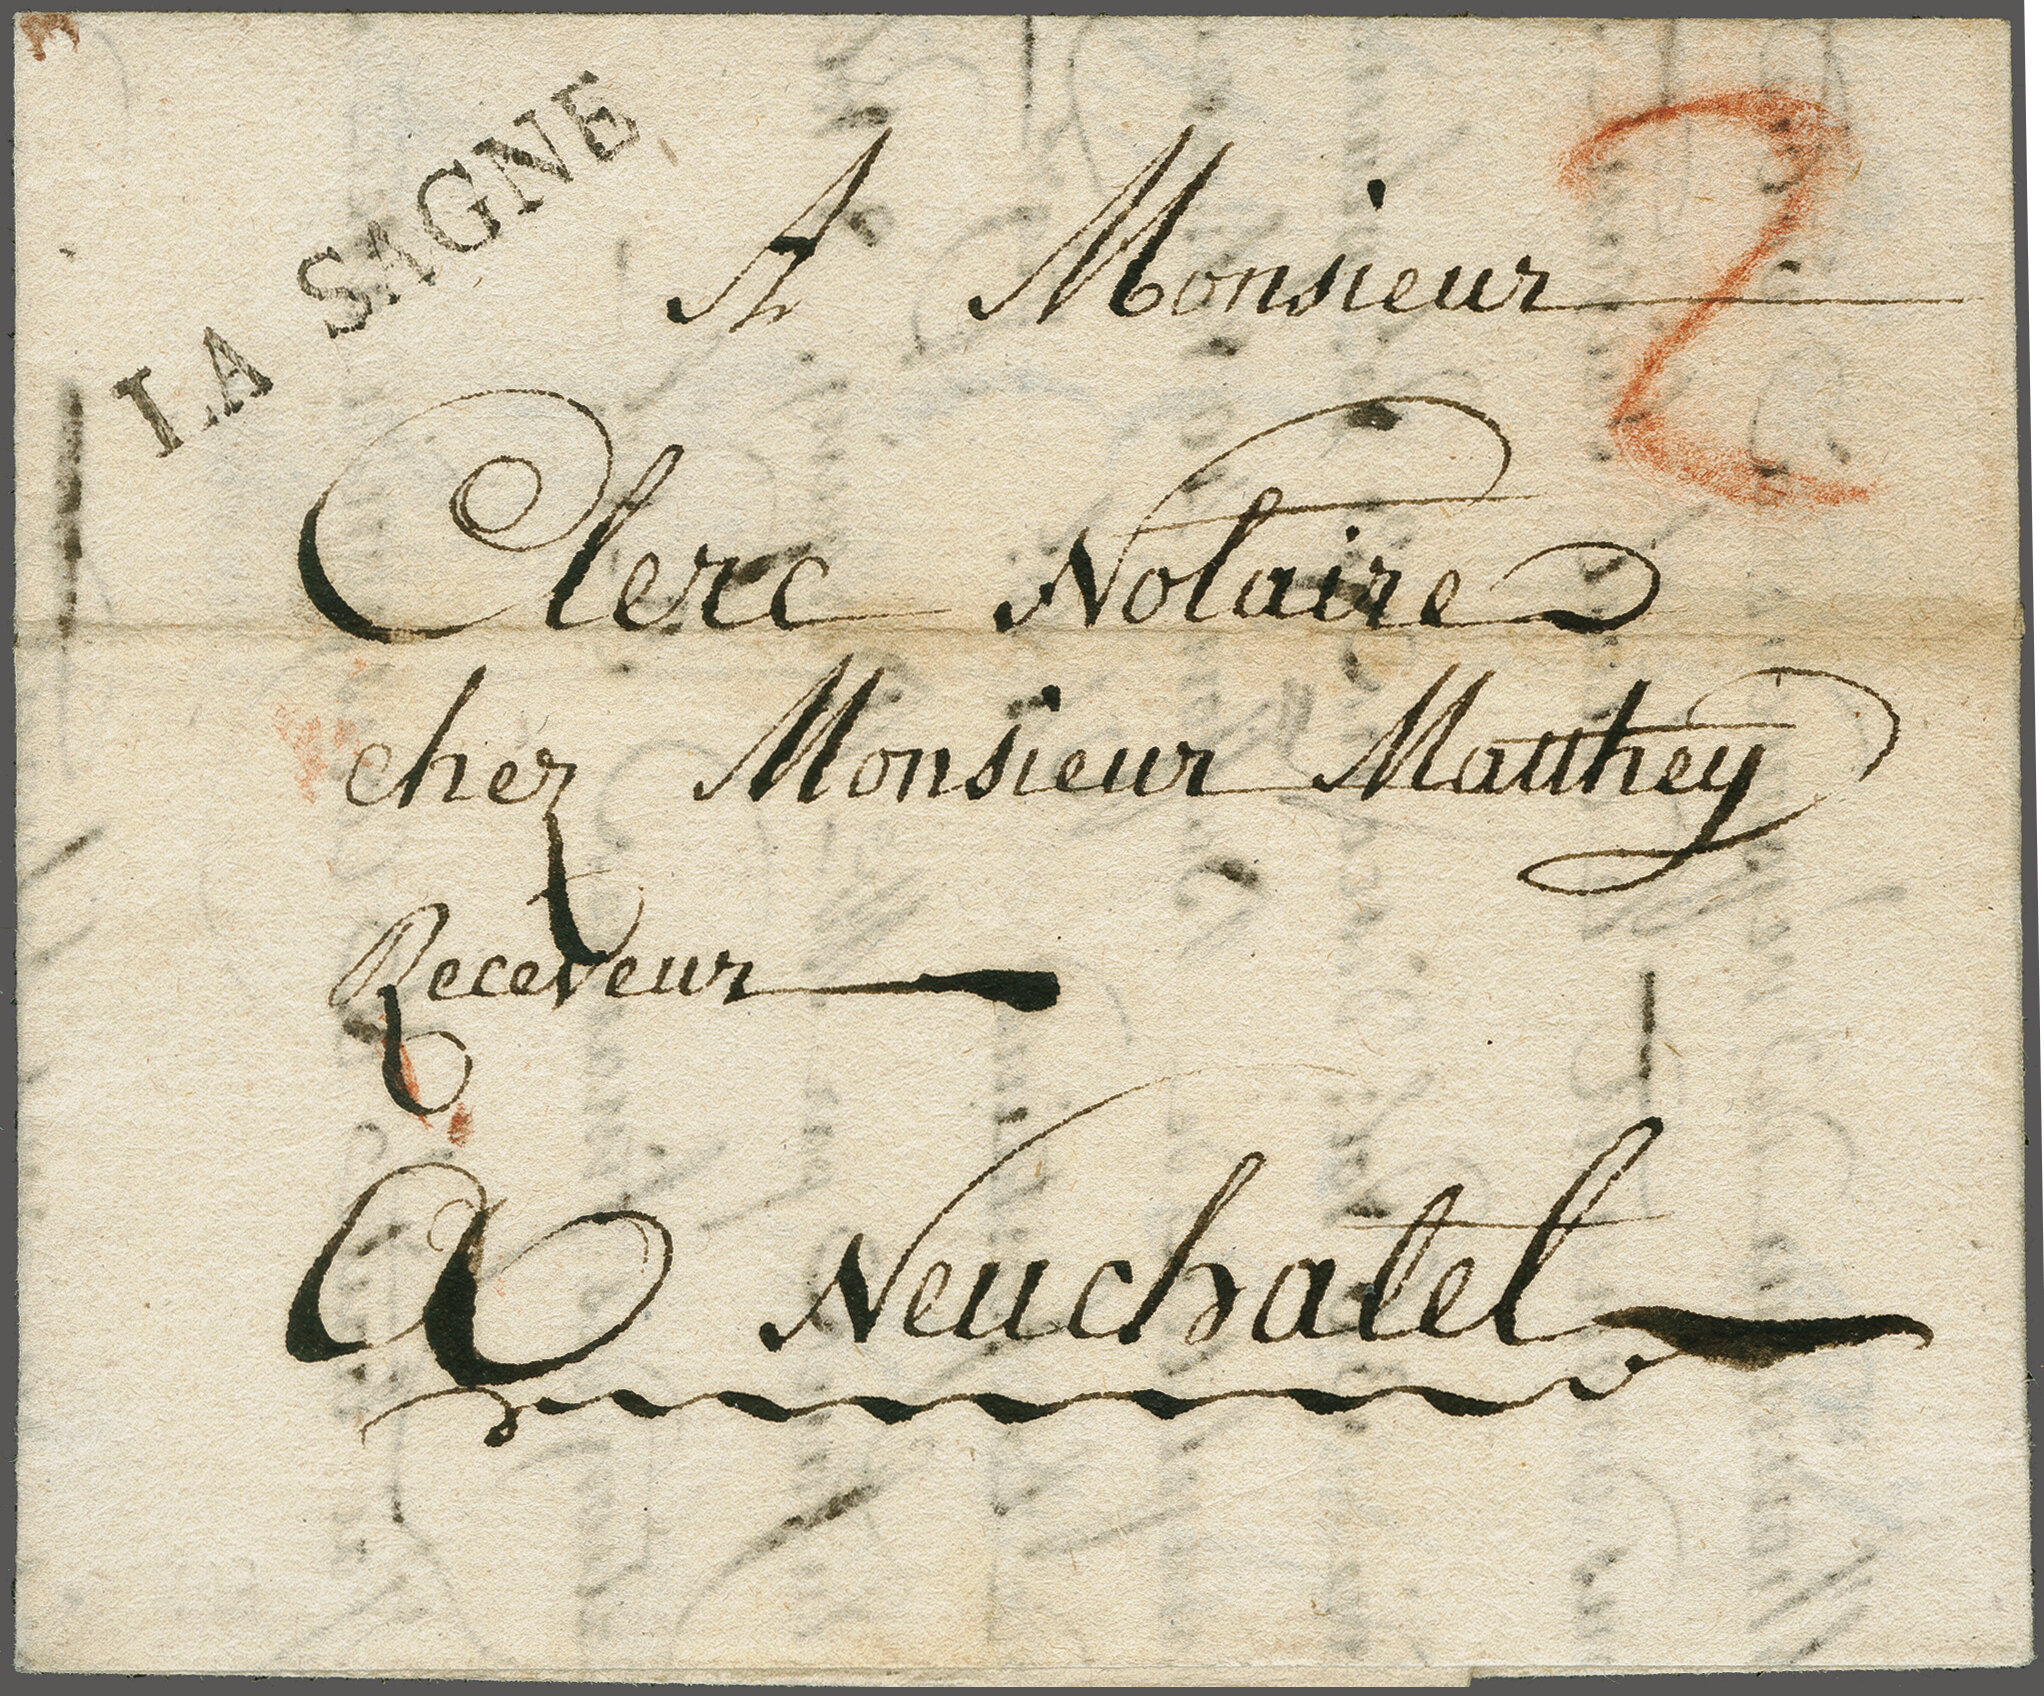 LA SAGNE
2
A Monsieur
Clerc Notaire
chez Monsieur Matthey
Receveur
A Neuchatel